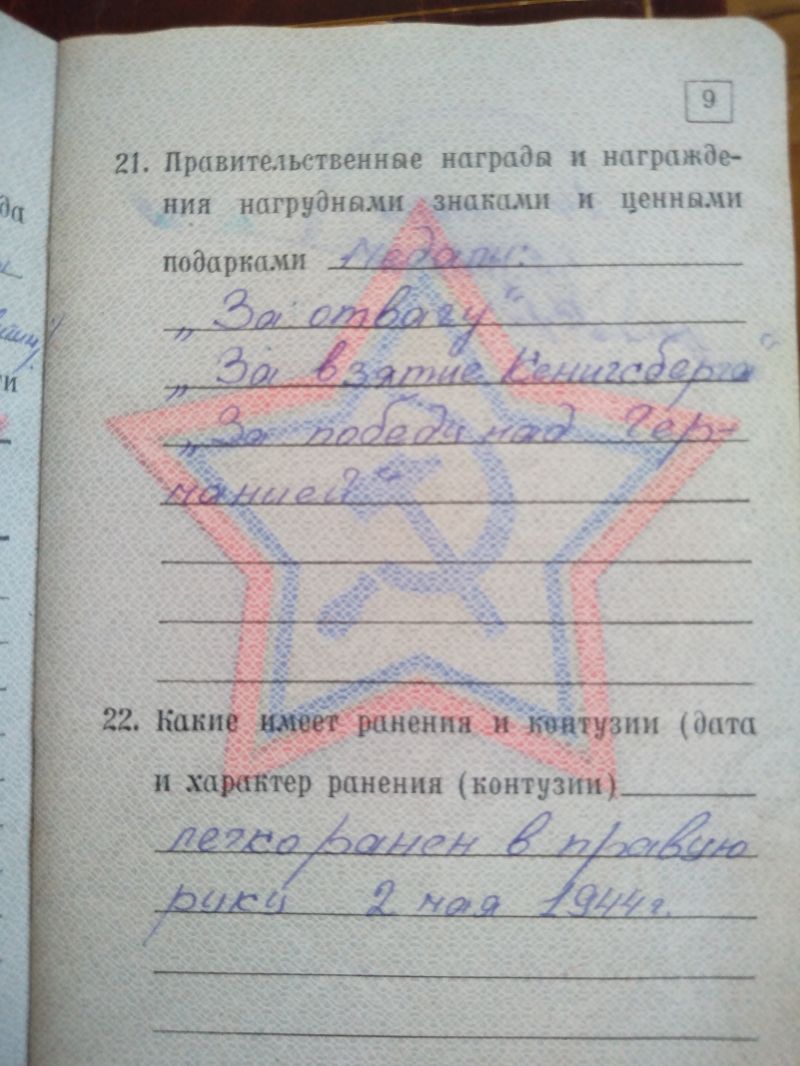 9
21. Правительственные награды и награжде-
ния нагрудными знаками и ценными
подарками Медали:
„За отвагу"
„За взятие Кенигсберга"
„За победу над Гер-
манией"
22. Какие имеет ранения и контузии (дата
и характер ранения (контузии)
легко ранен в правую
руку 2 мая 1944г.
да
ти